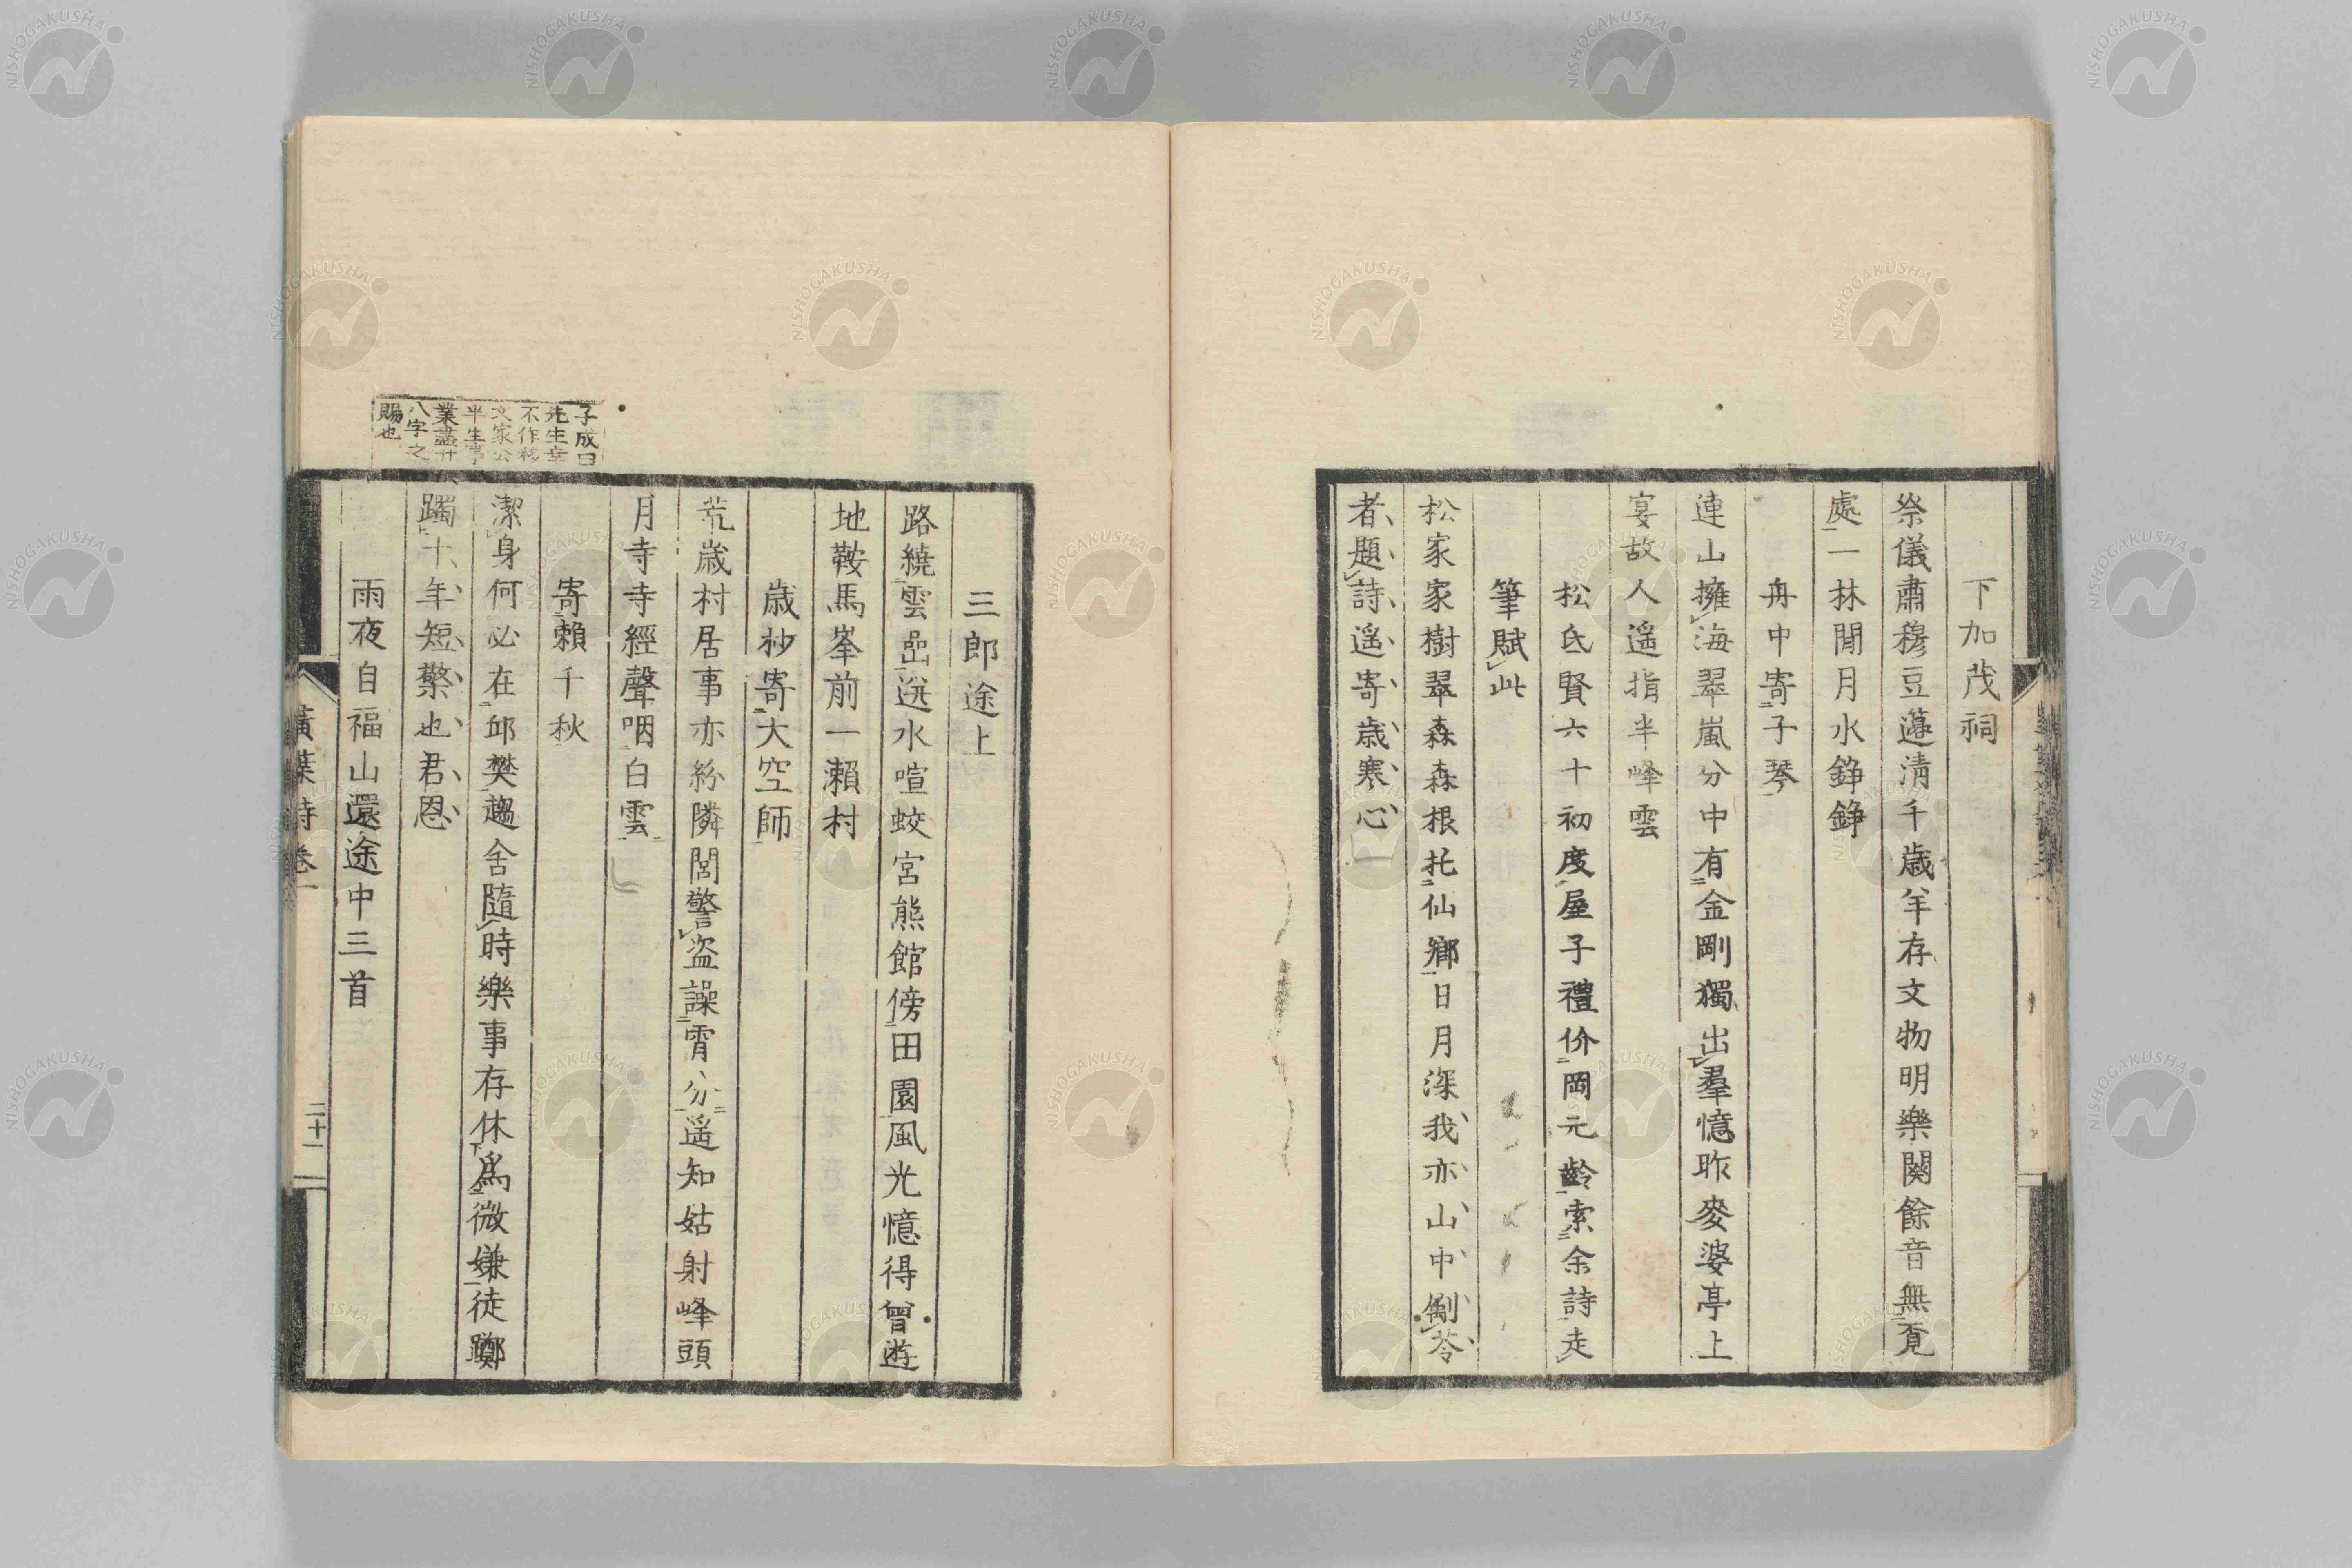 下加茂祠
祭儀肅穆豆籩淸千歲羊存文物明樂闋餘音無覔
處一林閒月水錚錚
舟中寄子琴
連山擁海翠嵐分中有金剛獨出羣憶昨麥婆亭上
宴故人遥指半峰雲
松氏賢六十初度屋子禮价岡元齡索余詩走
筆賦此
松家家樹翠森森根托仙鄉日月深我亦山中劚苓
者題詩遥寄歲寒心
三郎途上
路繞雲嵒送水喧蛟宮熊館傍田園風光憶得曾遊
地鞍馬峯前一瀨村
歲杪寄大空師
荒歲村居事亦紛隣閭警盗譟宵分遥知姑射峰頭
月寺寺經聲咽白雲
寄賴千秋
潔身何必在邱樊趨舍隨時樂事存休爲微嫌徒躑
躅十年短檠也君恩
雨夜自福山還途中三首
子成曰
先生幸
不作
文家公
平生事
業盡廿
八字之
賜也
黃葉詩卷一
二十一
NISHOGAKUSHA